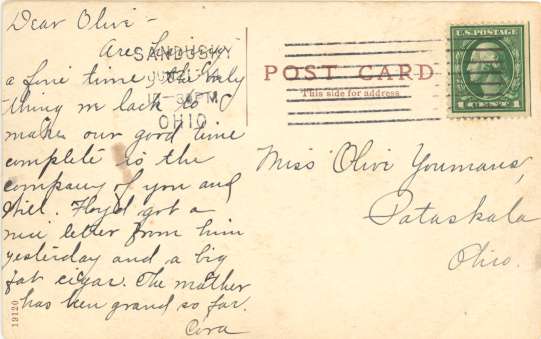 Dear Olive -
Are having
a fine time, the only
thing we lack to
make our good time
complete is the
company of you and
Will. Floyd got a
nice letter from him
yesterday and a big
fat cigar. The mother
has been grand so far.
Cora
19120
SANDUSKY
30 PM
OHIO
POST CARD
This side for address
U.S. POSTAGE
1 CENT 1
Miss Olive Youmans,
Pataskala
Ohio.